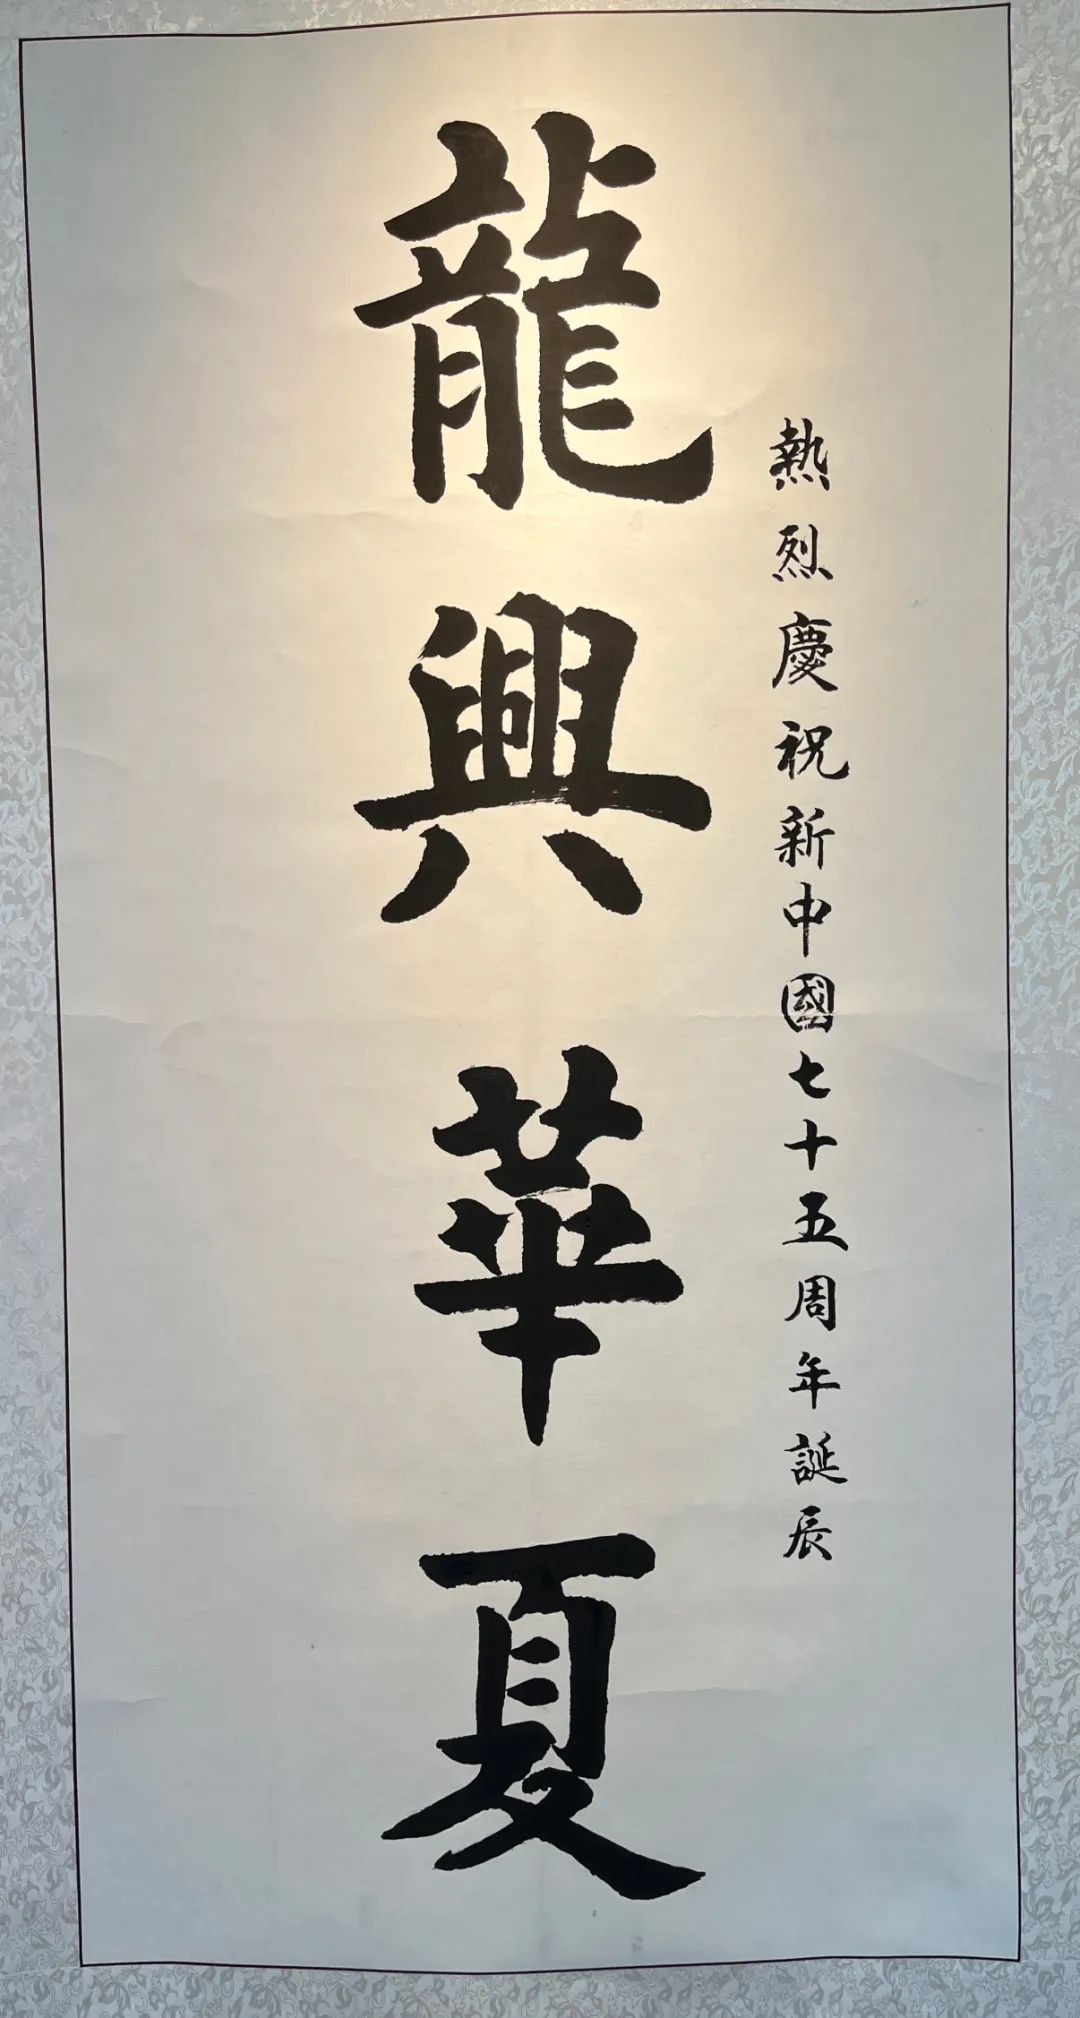 熱烈慶祝新中國七十五周年誕辰
龍興華夏